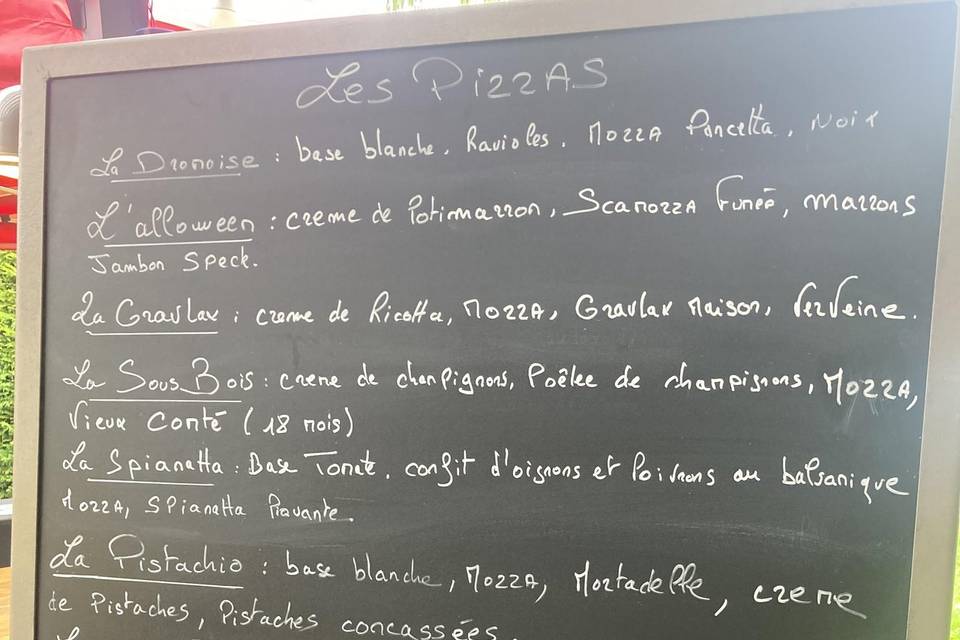 Les Pizzas
La Dromoise : base blanche, Ravioles, Mozza Pancetta, Noix
L'alloween : creme de Potimarron, Scamozza Fumée, marrons
Jambon Speck.
La Gravlax : creme de Ricotta, Mozza, Gravlax Maison, Verveine.
La Sous Bois : creme de champignons, Poêlee de champignons, Mozza,
Vieux Comté (18 mois)
La Spianatta : Base Tomate, confit d'oignons et Poivrons au balsamique
Mozza, Spianatta Piquante.
La Pistachio : base blanche, Mozza, Mortadelle, creme
de Pistaches, Pistaches concassées.